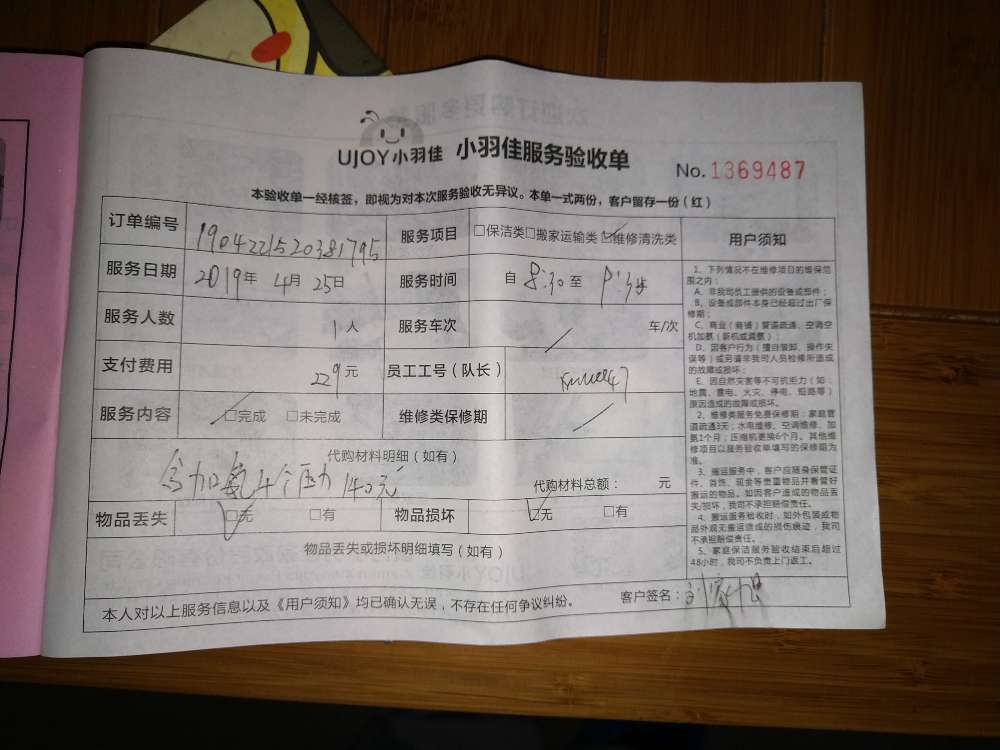 UJOY小羽佳 小羽佳服务验收单 No.1369487
本验收单一经核签，即视为对本次服务验收无异议。本单一式两份，客户留存一份（红）
订单编号 190422152038 1795 服务项目 □保洁类□搬家运输类☑维修清洗类
服务日期 2019年 4月 25日 服务时间 自 8:30 至
服务人数 1人 服务车次 / 车/次
支付费用 229元 员工工号（队长）
服务内容 ☑完成 □未完成 维修类保修期 /
代购材料明细（如有）
含加氟4个压力 140元 代购材料总额： 元
物品丢失 ☑无 □有 物品损坏 ☑无 □有
物品丢失或损坏明细填写（如有）
本人对以上服务信息以及《用户须知》均已确认无误，不存在任何争议纠纷。 客户签名：
用户须知
1、下列情况不在维修项目的维保范
围之内：
A、非我司员工提供的设备或部件；
B、设备或部件本身已经超过出厂保
修期；
C、商业（商铺）管道疏通、空调空
机加氨（新机或漏氨）；
D、因客户行为（擅自装卸、操作失
误等）或另请非我司人员检修所造成
的故障或损坏；
E、因自然灾害等不可抗拒力（如：
地震、雷电、火灾、停电、短路等）
原因造成的故障或损坏。
2、维修类服务免费保修期：家庭管
道疏通3天；水电维修、空调维修、加
氨1个月；压缩机更换6个月。其他维
修项目以服务验收单填写的保修期为
准。
3、搬运服务中，客户应随身保管证
件、首饰、现金等贵重物品并看管好
搬运的物品。如因客户造成的物品丢
失/损坏，我司不承担赔偿责任。
4、搬运服务验收时，如外包装或物
品外观无搬运造成的损伤痕迹，我司
不承担赔偿责任。
5、家庭保洁服务验收结束后超过
48小时，我司不负责上门返工。